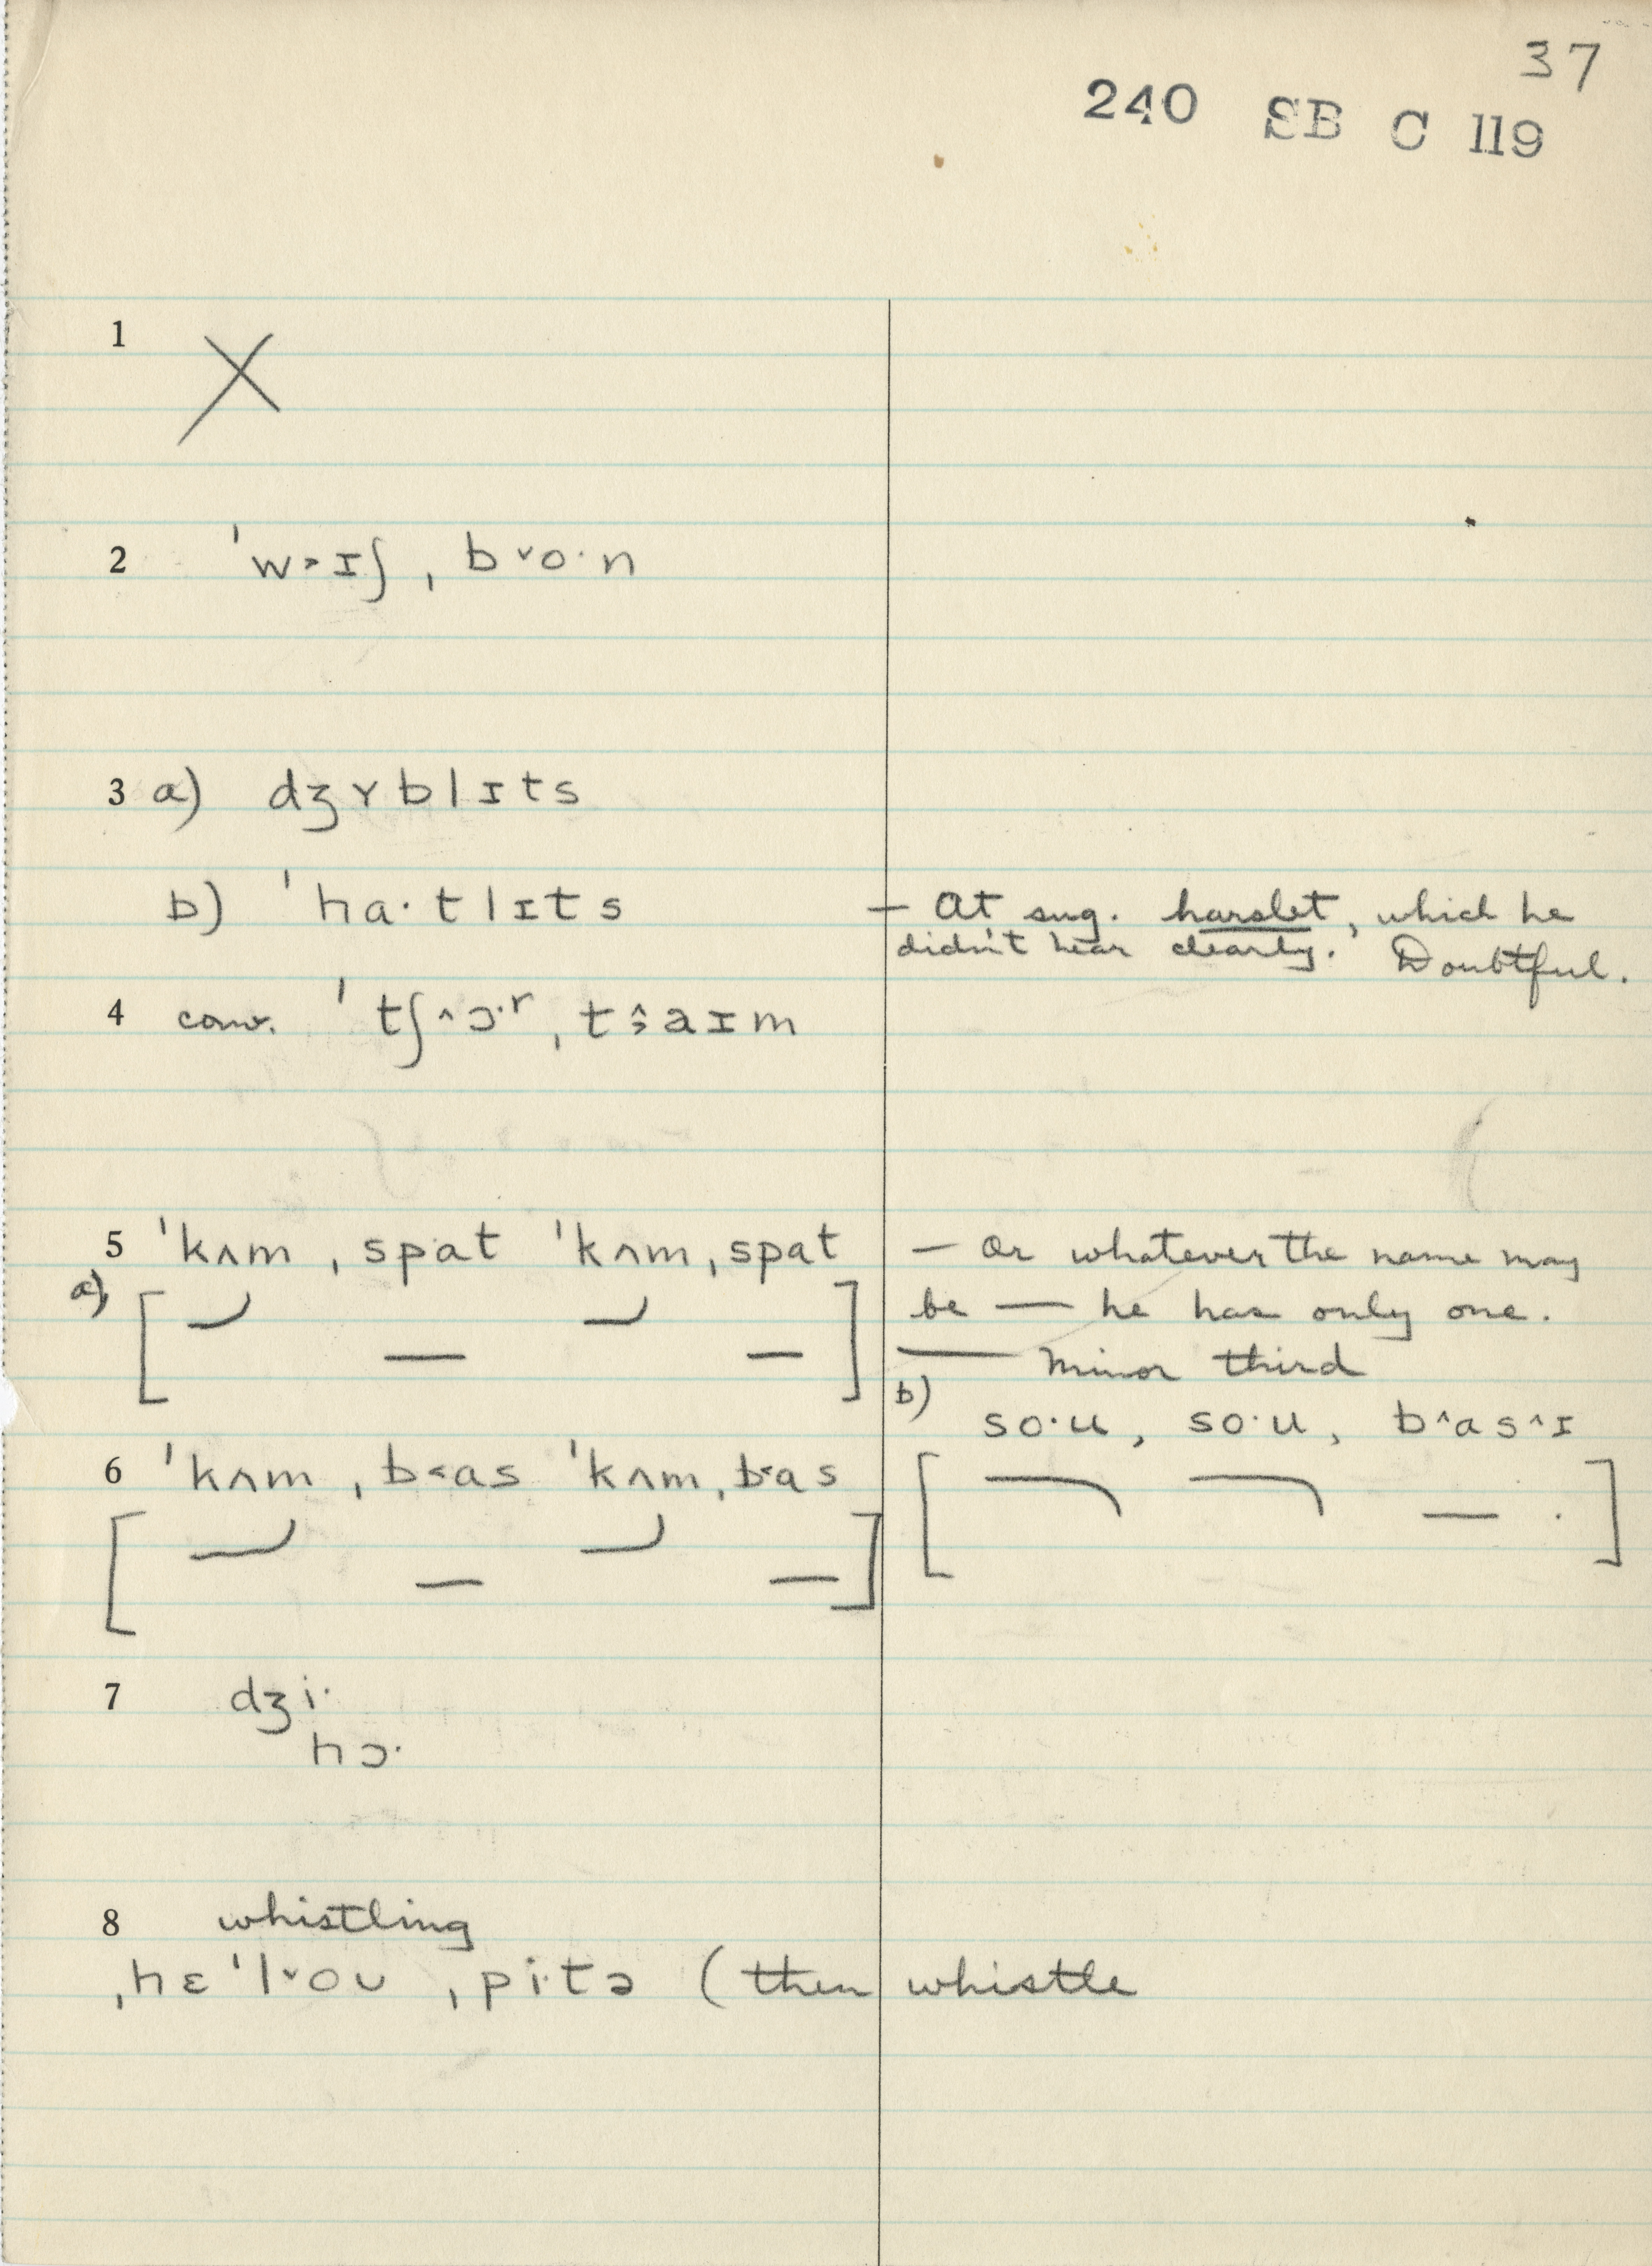 37
240 SB C 119
1 X
2 ˈw˃ɪʃ ˌb˅o·n
3 a) dʒɤblɪts
b) ˈha·tlɪts — At sug. harslet, which he
didn't hear clearly. Doubtful.
4 conv. ˈtʃ^ɔ·ʳ ˌtɜaɪm
5 ˈkʌm ˌspat ˈkʌm ˌspat — Or whatever the name may
a)
be — he has only one.
— Minor third
b)
so·u, so·u, b^as^ɪ
6 ˈkʌm ˌb˂as ˈkʌm ˌb˂as
7 dʒi·
hɔ·
8 whistling
ˌhɛˈl˅oʊ ˌpi·tə (then whistle